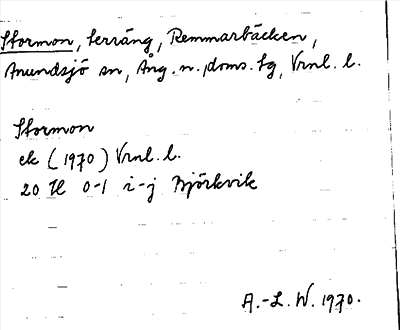 Stormon, terräng, Remmarbäcken,
Anundsjö sn, Ång. n., doms. tg, Vrnl. l.
Stormon
ek (1970) Vrnl. l.
20 H 0-1 i-j Björkvik
A.-L. W. 1970.